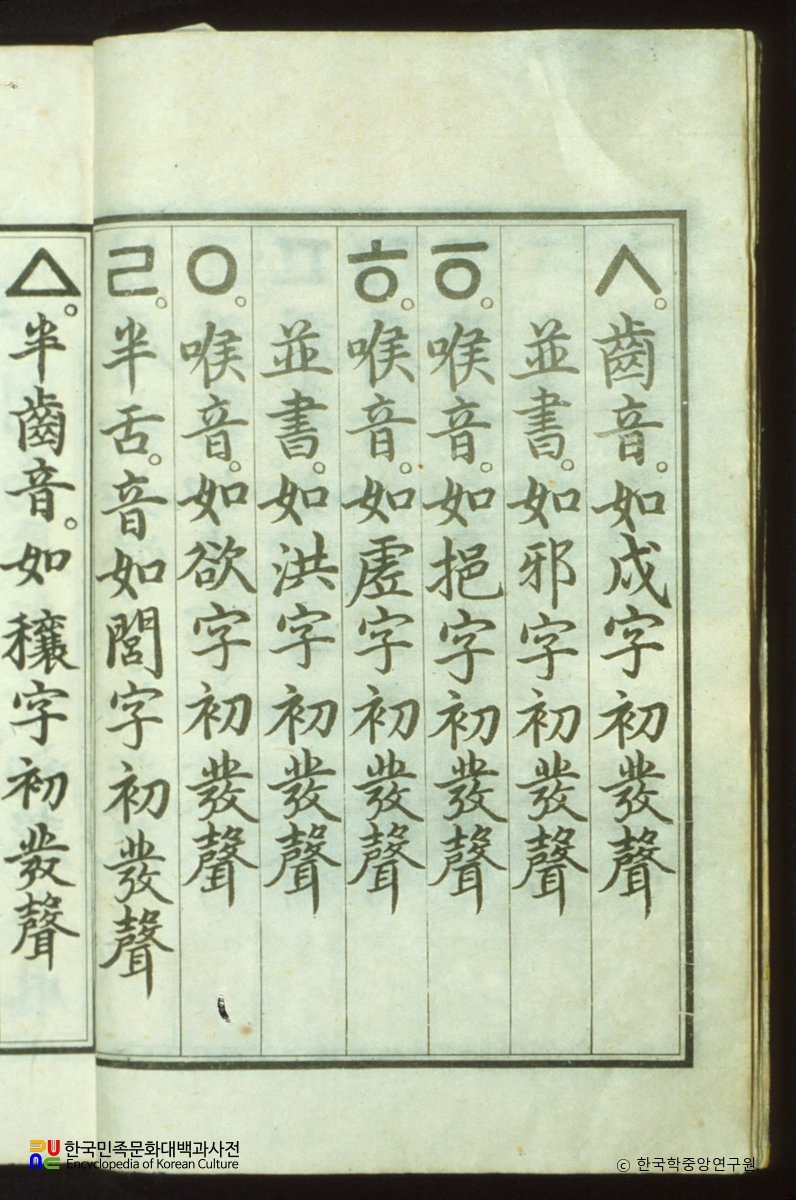 ㅅ。齒音。如戍字初發聲
並書。如邪字初發聲
ㆆ。喉音。如挹字初發聲
ㅎ。喉音。如虛字初發聲
並書。如洪字初發聲
ㅇ。喉音。如欲字初發聲
ㄹ。半舌。音如閭字初發聲
ㅿ。半齒音。如穰字初發聲
한국민족문화대백과사전
Encyclopedia of Korean Culture
© 한국학중앙연구원